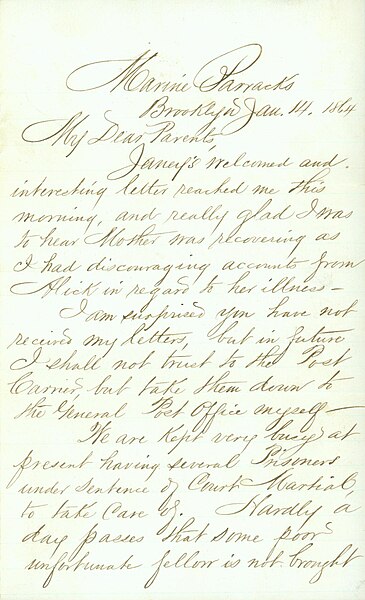 Marine Barracks
Brooklyn Jan. 14. 1864
My Dear Parents,
Janey's welcomed and
interesting letter reached me this
morning, and really glad I was
to hear Mother was recovering as
I had discouraging accounts from
Alick in regard to her illness –
I am surprised you have not
recived my letters, but in future
I shall not trust to the Post
Carrier, but take them down to
the General Post Office myself –
We are kept very busy at
present having several Prisoners
under sentence of Court Martial,
to take care of. Hardly a
day passes that some poor
unfortunate fellow is not brought